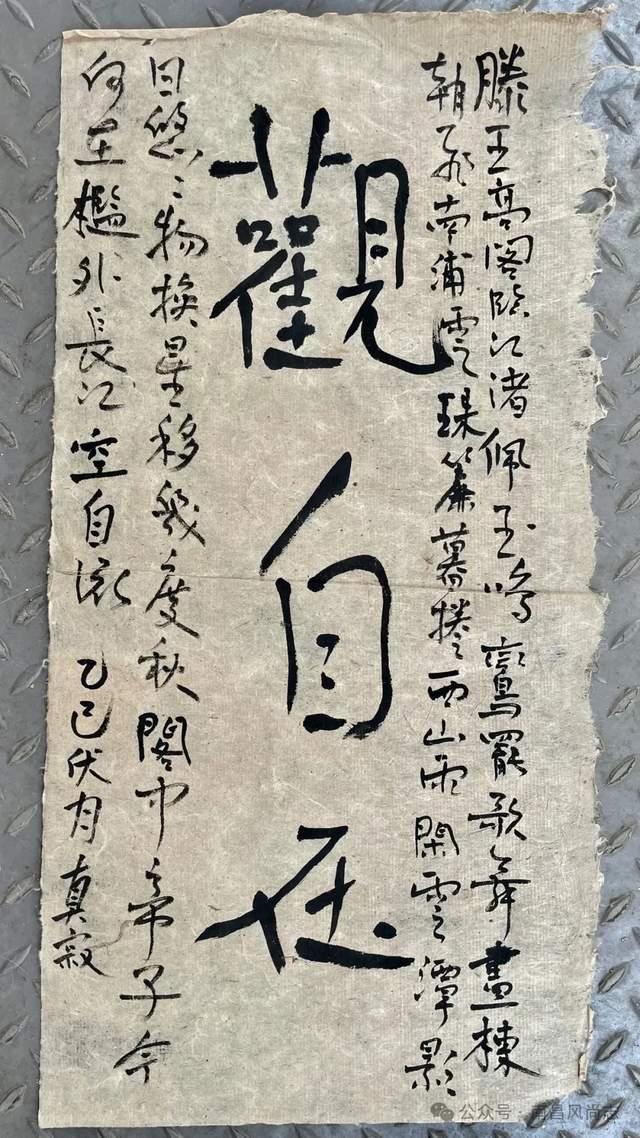 滕王高閣臨江渚佩玉鳴鸞罷歌舞畫棟
朝飛南浦雲珠簾暮捲西山雨閑雲潭影
觀自在
日悠々物換星移幾度秋閣中帝子今
何在檻外長江空自流 乙巳伏月真寂
公众号:南昌风尚志